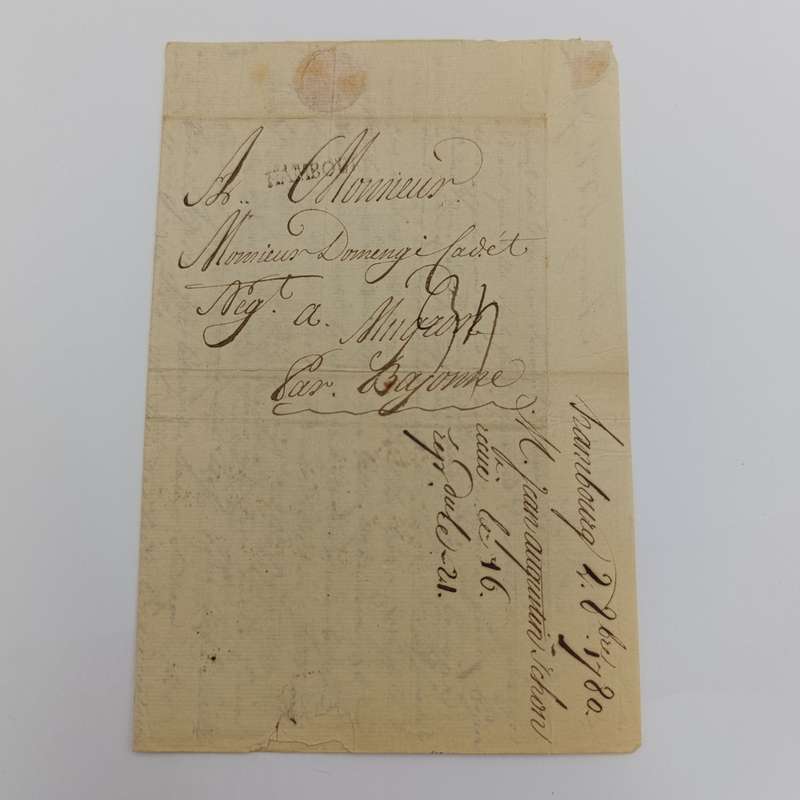 HAMBOU
A.. Monsieur
Monsieur Domengé Cadét
Négt. a. Mugron
34
Par. Bayonne
hambourg 2. 8bre. 1780.
M. Jean augustin Schon
recue le 16.
rep. du le 21.